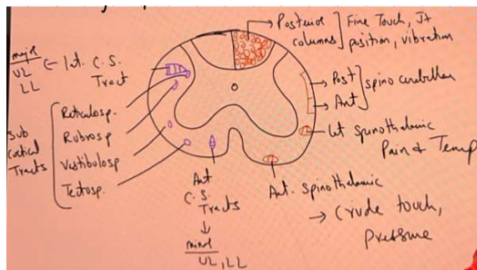 Posterior columns] Fine Touch, Jt position, vibration
major
UL
LL
← lat. C.S. Tract
Post
Ant
] spino cerebellar
Lat spinothalamic
Pain & Temp
Sub
Cortical
Tracts
Reticulosp.
Rubrosp
Vestibulosp
Tectosp.
Ant
C.S.
Tracts
↓
minor
UL, LL
Ant. spinothalamic
→ Crude touch,
pressure